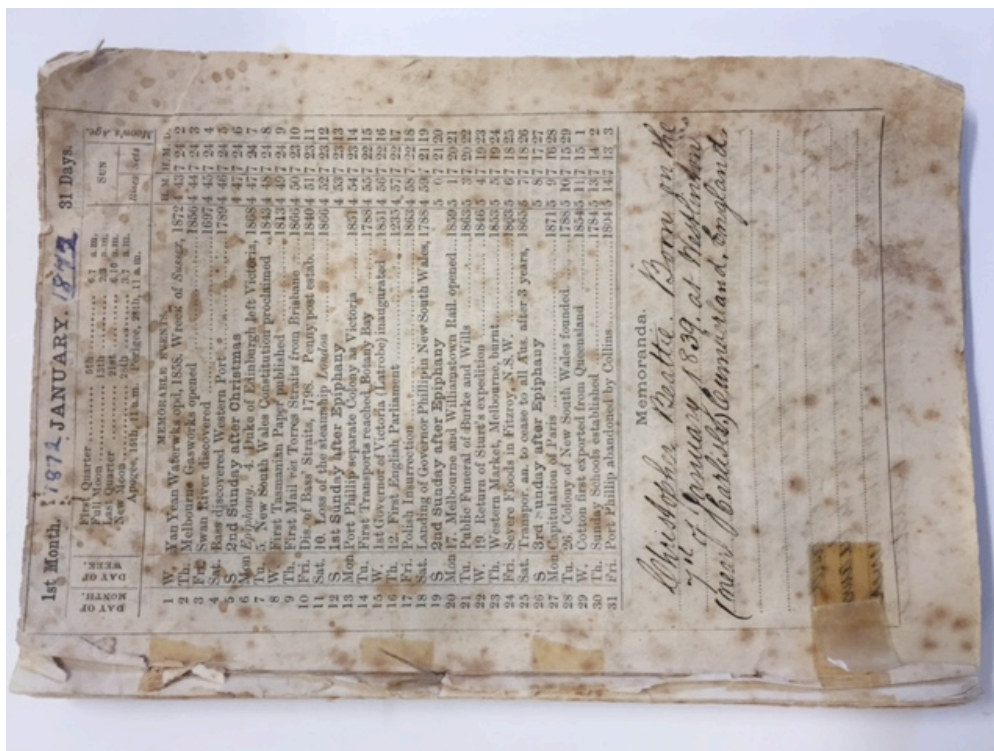 1st Month. 1872 JANUARY. 1872 31 Days.
DAY OF MONTH.
DAY OF WEEK.
First Quarter 5th 6.7 a.m.
Full Moon 13th
Last Quarter 21st
New Moon
Apogee, 15th, 11 a.m. Perigee, 28th, 11 a.m.
SUN
Rises Sets
Moon's Age.
MEMORABLE EVENTS.
H. M. H. M. D.
1 W. Yan Yean Waterwks opd, 1858. Wreck of Sussex, 1872 4 43 7 24 2
2 Th. Melbourne Gasworks opened 1856 4 44 7 24 3
3 Fri. Swan River discovered 1697 4 45 7 24 4
4 Sat. Bass discovered Western Port 1789 4 46 7 24 5
5 S 2nd Sunday after Christmas 4 47 7 24 6
6 Mon Epiphany. 4. Duke of Edinburgh left Victoria, 1868 4 47 7 24 7
7 Tu. 5. New South Wales Constitution proclaimed 1843 4 48 7 24 8
8 W. First Tasmanian Paper published 1813 4 49 7 24 9
9 Th. First Mail via Torres Straits from Brisbane 1866 4 50 7 23 10
10 Fri Dis of Bass' Straits, 1798. Penny post estab. 1840 4 51 7 23 11
11 Sat. 10. Loss of the steamship London 1866 4 52 7 23 12
12 S. 1st Sunday After Epiphany 4 53 7 23 13
13 Mon Port Phillip separate Colony as Victoria 1851 4 54 7 23 14
14 Tu. First Transports reached Botany Bay 1788 4 55 7 22 15
15 W. 1st Governor of Victoria (Latrobe) inaugurated 1851 4 56 7 22 16
16 Th. 12. First English Parliament 1235 4 57 7 22 17
17 Fri. Polish Insurrection 1863 4 58 7 22 18
18 Sat. Landing of Governor Phillip in New South Wales, 1788 4 59 7 21 19
19 S 2nd Sunday after Epiphany 5 0 7 21 20
20 Mon 17. Melbourne and Williamstown Rail opened 1859 5 1 7 20 21
21 Tu. Public Funeral of Burke and Wills 1863 5 3 7 20 22
22 W. 19. Return of Sturt's expedition 1846 5 4 7 19 23
23 Th. Western Market, Melbourne, burnt 1853 5 5 7 19 24
24 Fri. Severe Floods in Fitzroy, N.S.W. 1863 5 6 7 18 25
25 Sat. Transpor. an. to cease to all Aus. after 3 years, 1865 5 7 7 18 26
26 S 3rd Sunday after Epiphany 5 8 7 17 27
27 Mon Capitulation of Paris 1871 5 9 7 16 28
28 Tu. 26. Colony of New South Wales founded 1788 5 10 7 15 29
29 W. Cotton first exported from Queensland 1854 5 11 7 15 1
30 Th. Sunday Schools established 1784 5 13 7 14 2
31 Fri. Port Phillip abandoned by Collins 1804 5 14 7 13 3
Memoranda.
Christopher Beattie Born on the
7th of January 1839. at Westlinton
(near Carlisle) Cumberland. England